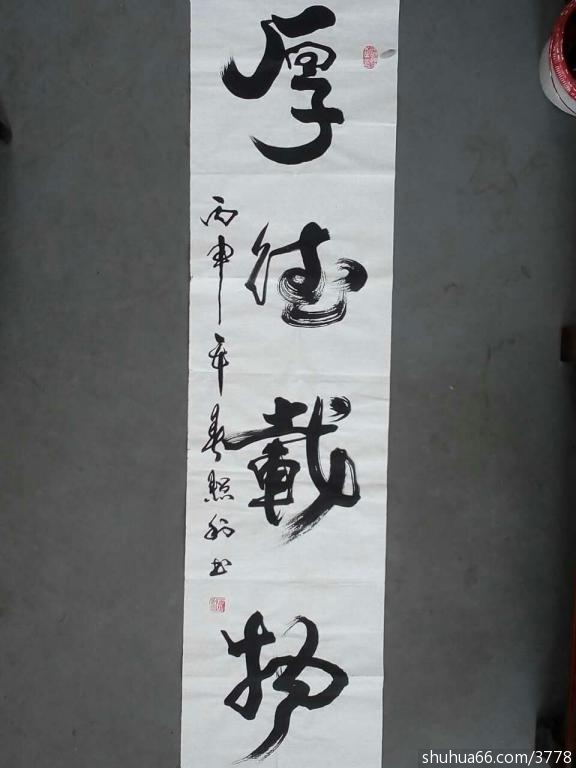 厚德載物
丙申年春照利书
shuhua66.com/3778